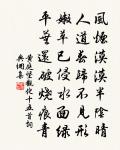 風煙漠漠半陰晴
人道春歸不見形
嫩草已侵水面綠
平蕪還破燒痕青
黄庭堅觀化十五首詞
典網集